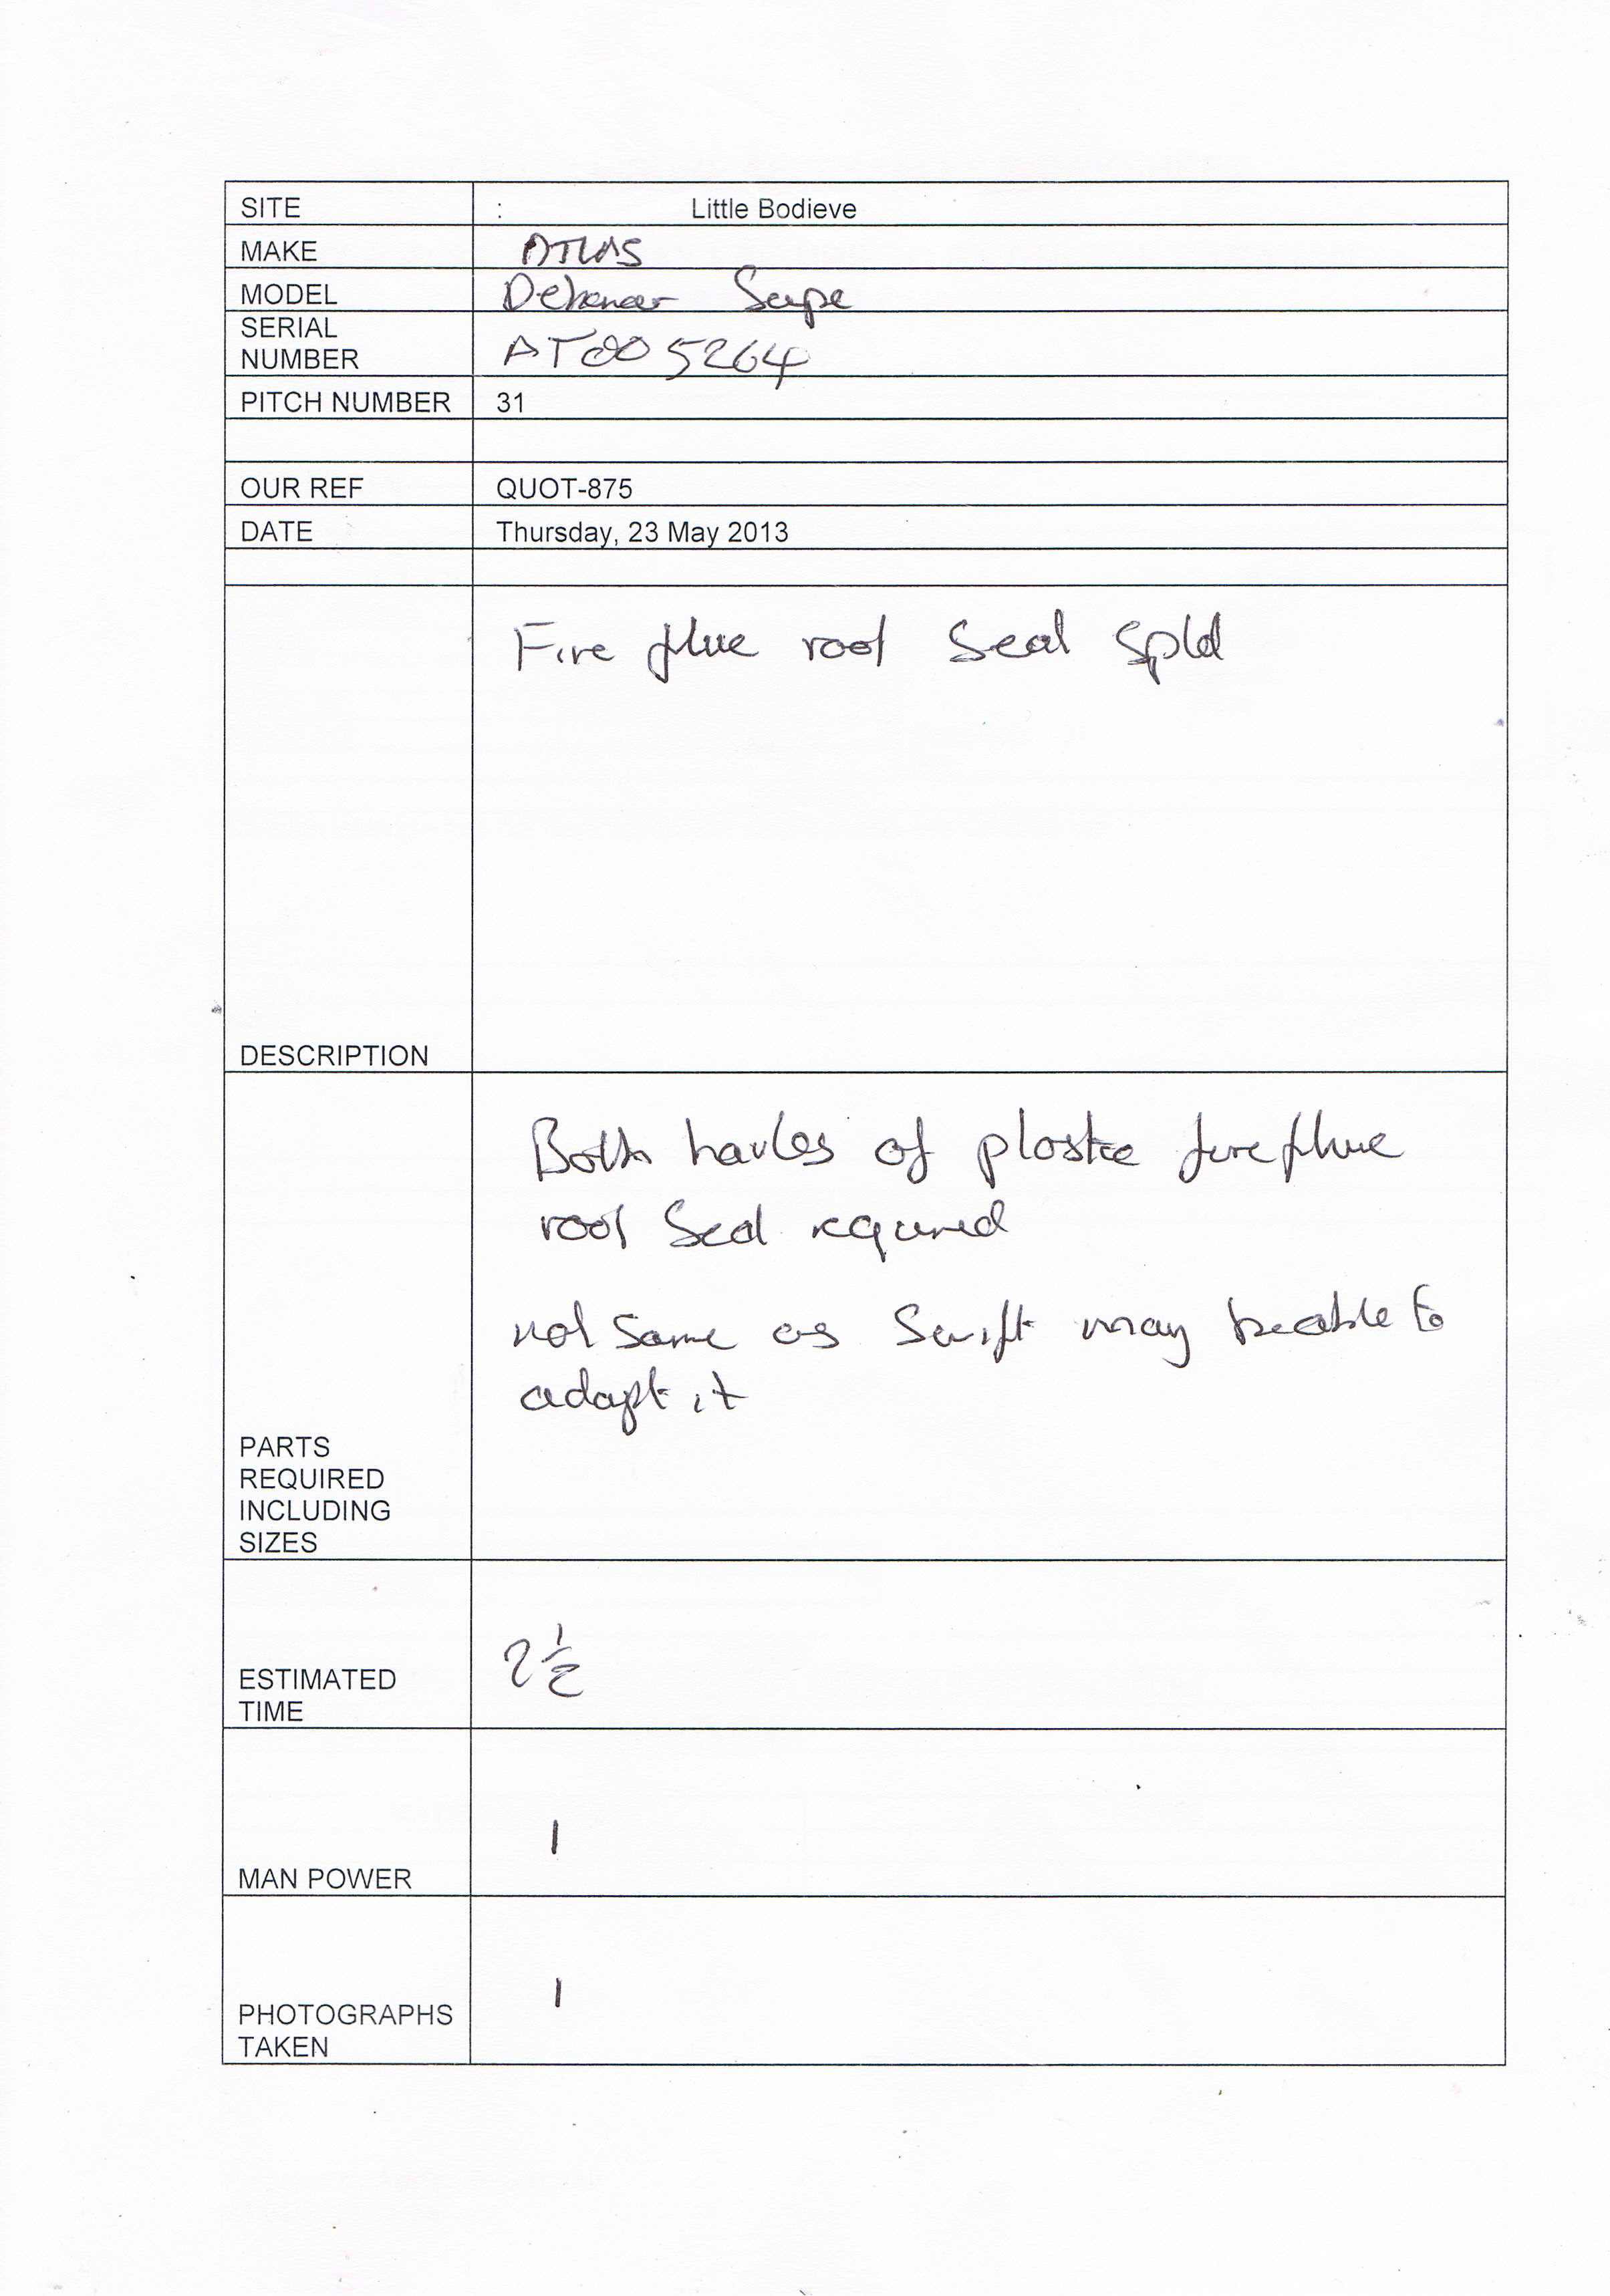 SITE : Little Bodieve
MAKE ATLAS
MODEL
SERIAL
NUMBER AT005264
PITCH NUMBER 31
OUR REF QUOT-875
DATE Thursday, 23 May 2013
Fire flue roof Seal Split
DESCRIPTION
Both havles of plastic fire flue
roof Seal required
not Same as Swift may be able to
adapt it
PARTS
REQUIRED
INCLUDING
SIZES
2 1/2
ESTIMATED
TIME
1
MAN POWER
1
PHOTOGRAPHS
TAKEN